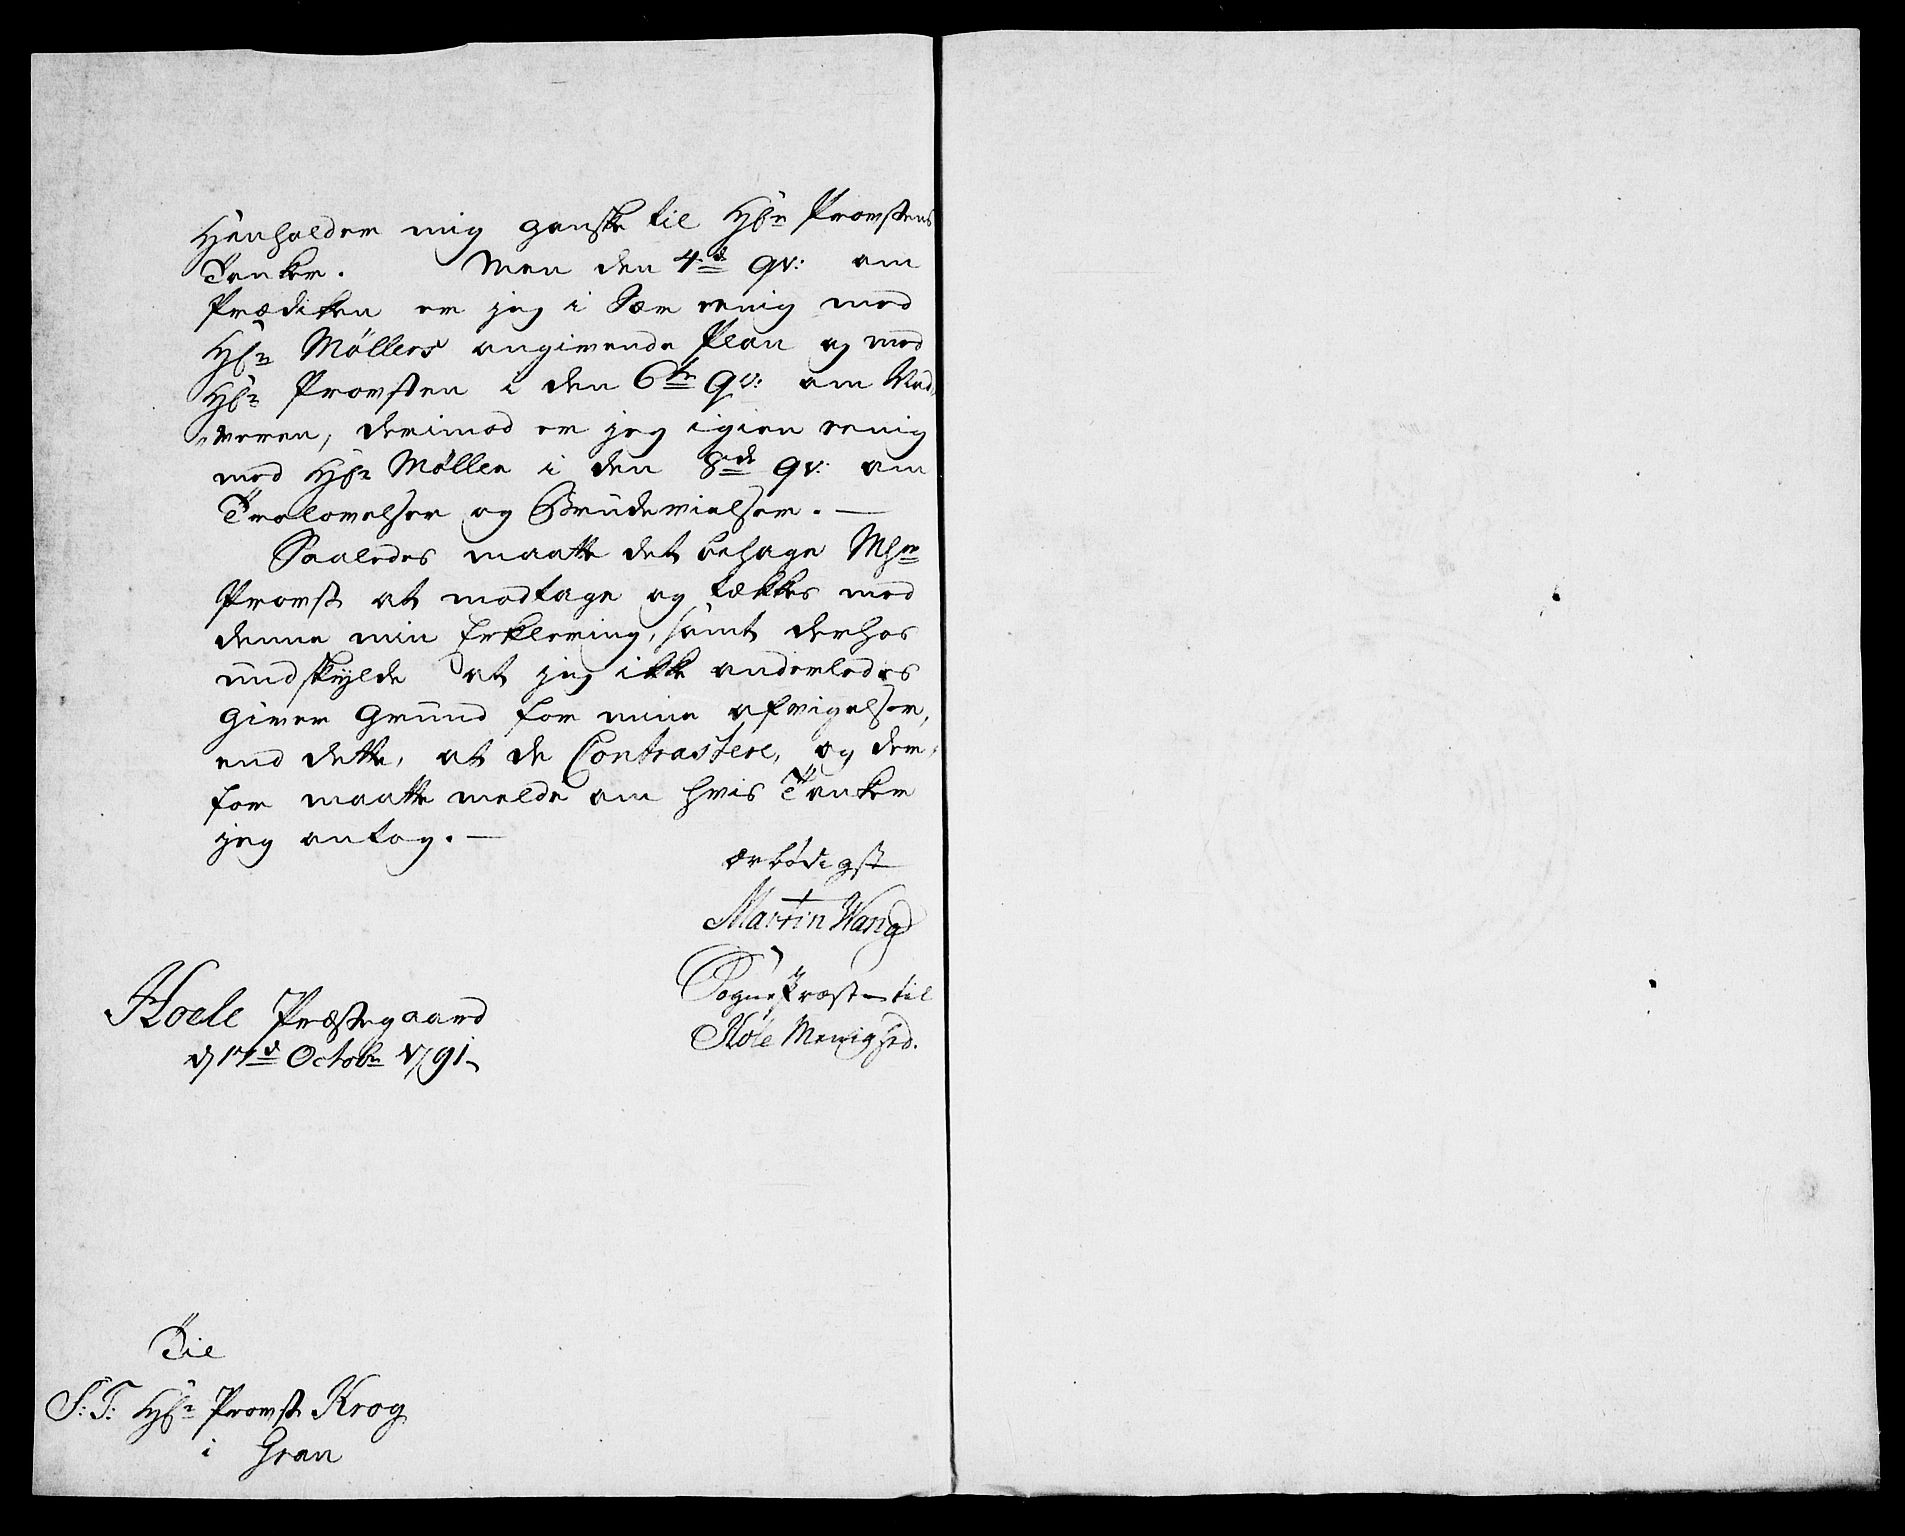 Henholder mig ganske til Hr: Provstens
Tanker. Men den 4de qv: om
Prædiken er jeg i Sær eenig med
Hr: Möllers angivende Plan og med
Hr: Provsten i den 6te qv: om Nad-
veren, derimod er jeg igien eenig
med Hr: Möller i den 8de qv: om
Trolovelser og Brudevielser. —
Saaledes maatte det behage Mhr
Provst at modtage og tækkes med
denne min Erklering, samt derhos
undskylde at jeg ikke anderledes
giver Grund for mine afvigelser,
end dette, at de Contrastere, og der-
for maatte melde om hvis Tanker
jeg antog. —
ærbödigst
Martin Wang
SognePræst til
Hole Menighed.
Hoele Præstegaard
d 17d Octobr 1791
Til
S: T: Hr: Provst Krog
i Gran